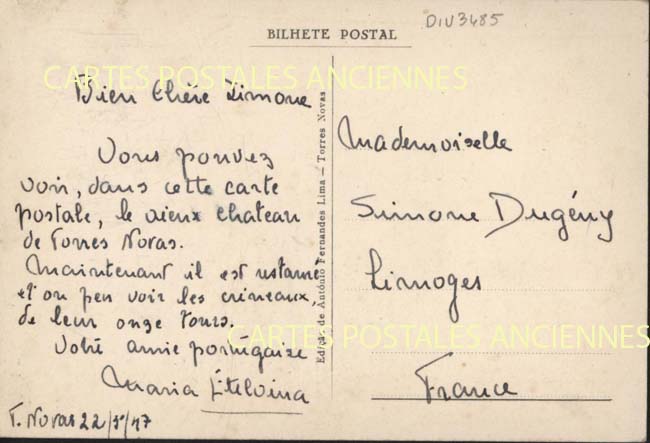 DIV3485
BILHETE POSTAL
CARTES POSTALES ANCIENNES
Bien Chère Simone
Vous pouvez
voir, dans cette carte
postale, le vieux chateau
de Torres Novas.
Maintenant il est restauré
et on peu voir les créneaux
de leur onze tours.
Votre amie portugaise
Maria Etelvina
T. Novas 22/5/47
Edição de António Fernandes Lima — Torres Novas
Mademoiselle
Simone Dugény
Limoges
CARTES POSTALES ANCIENNES
France